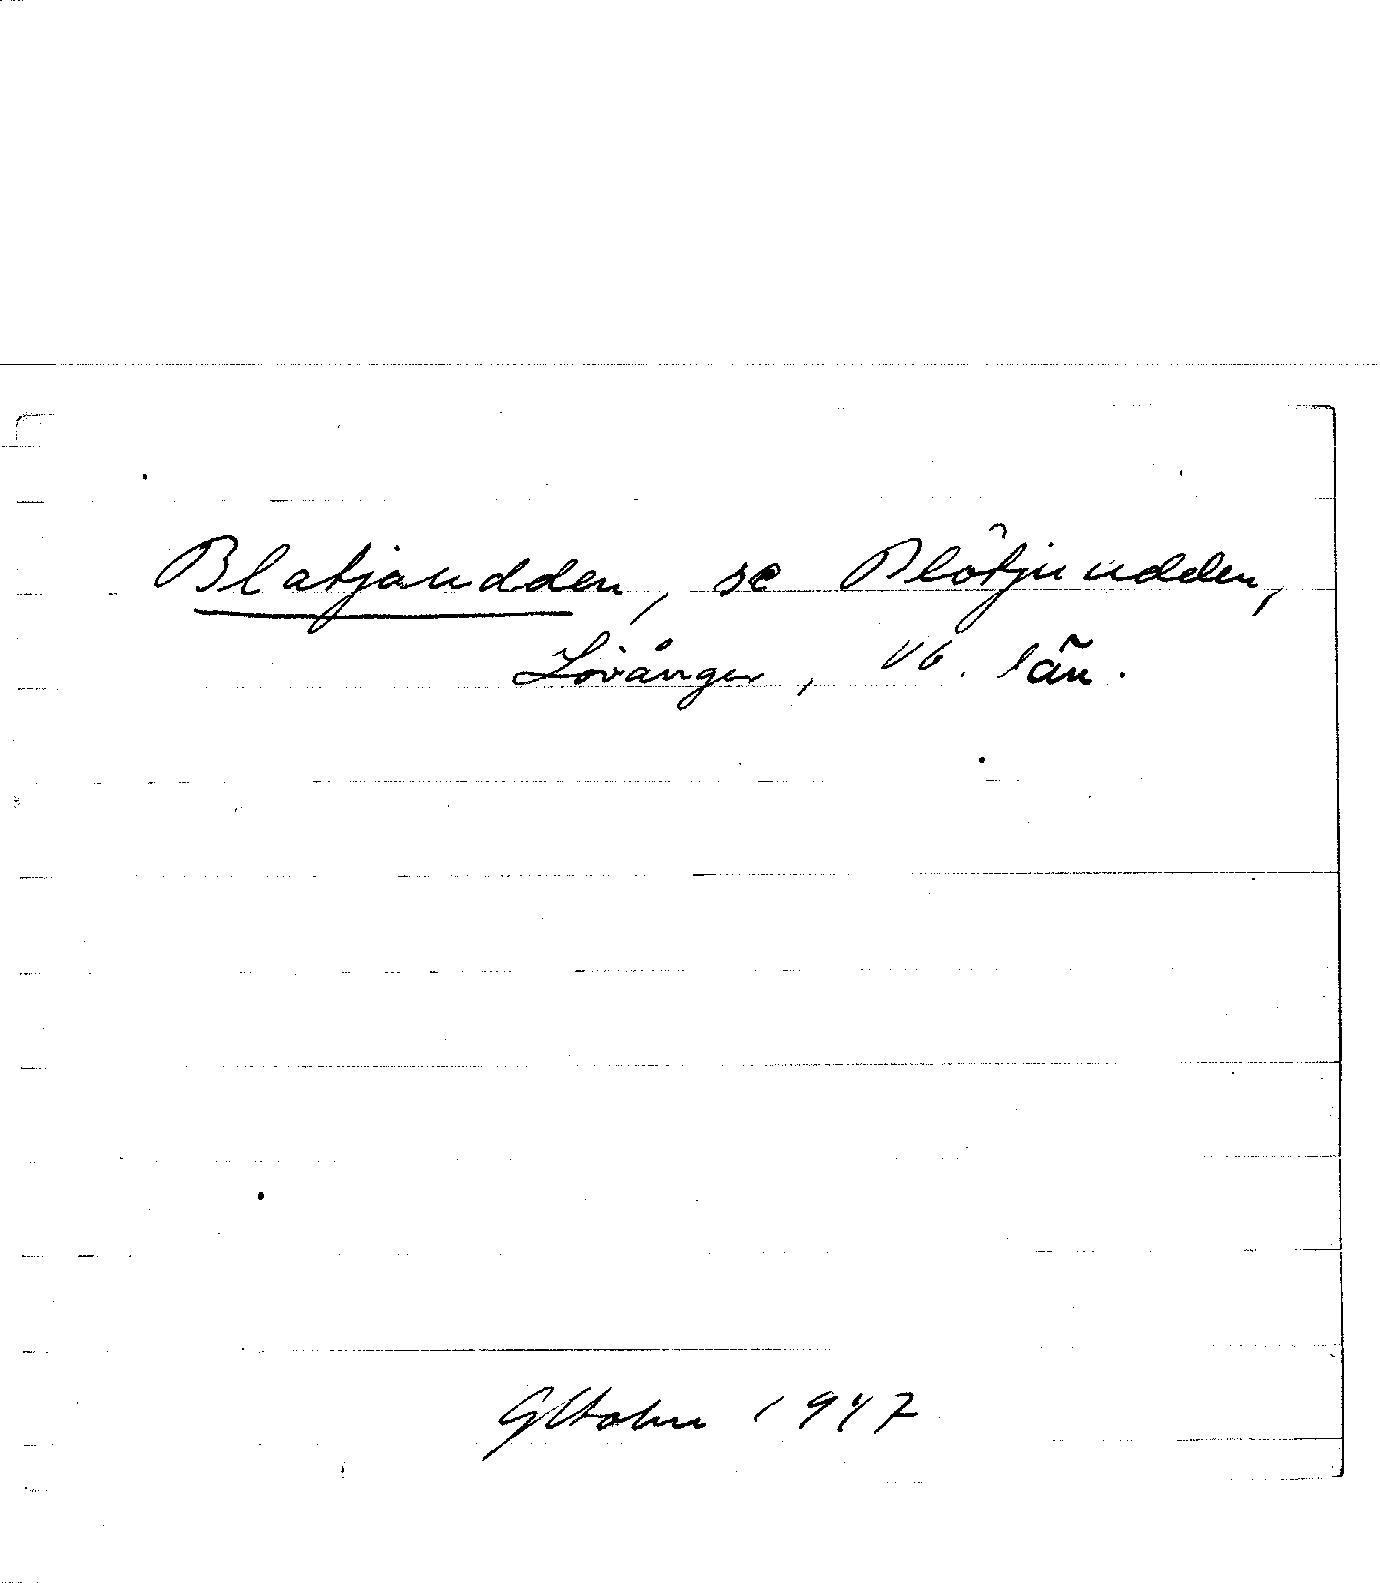 Blatjaudden, se Blötjuudden,
Lövånger, Vb. län.
GHolm 1947